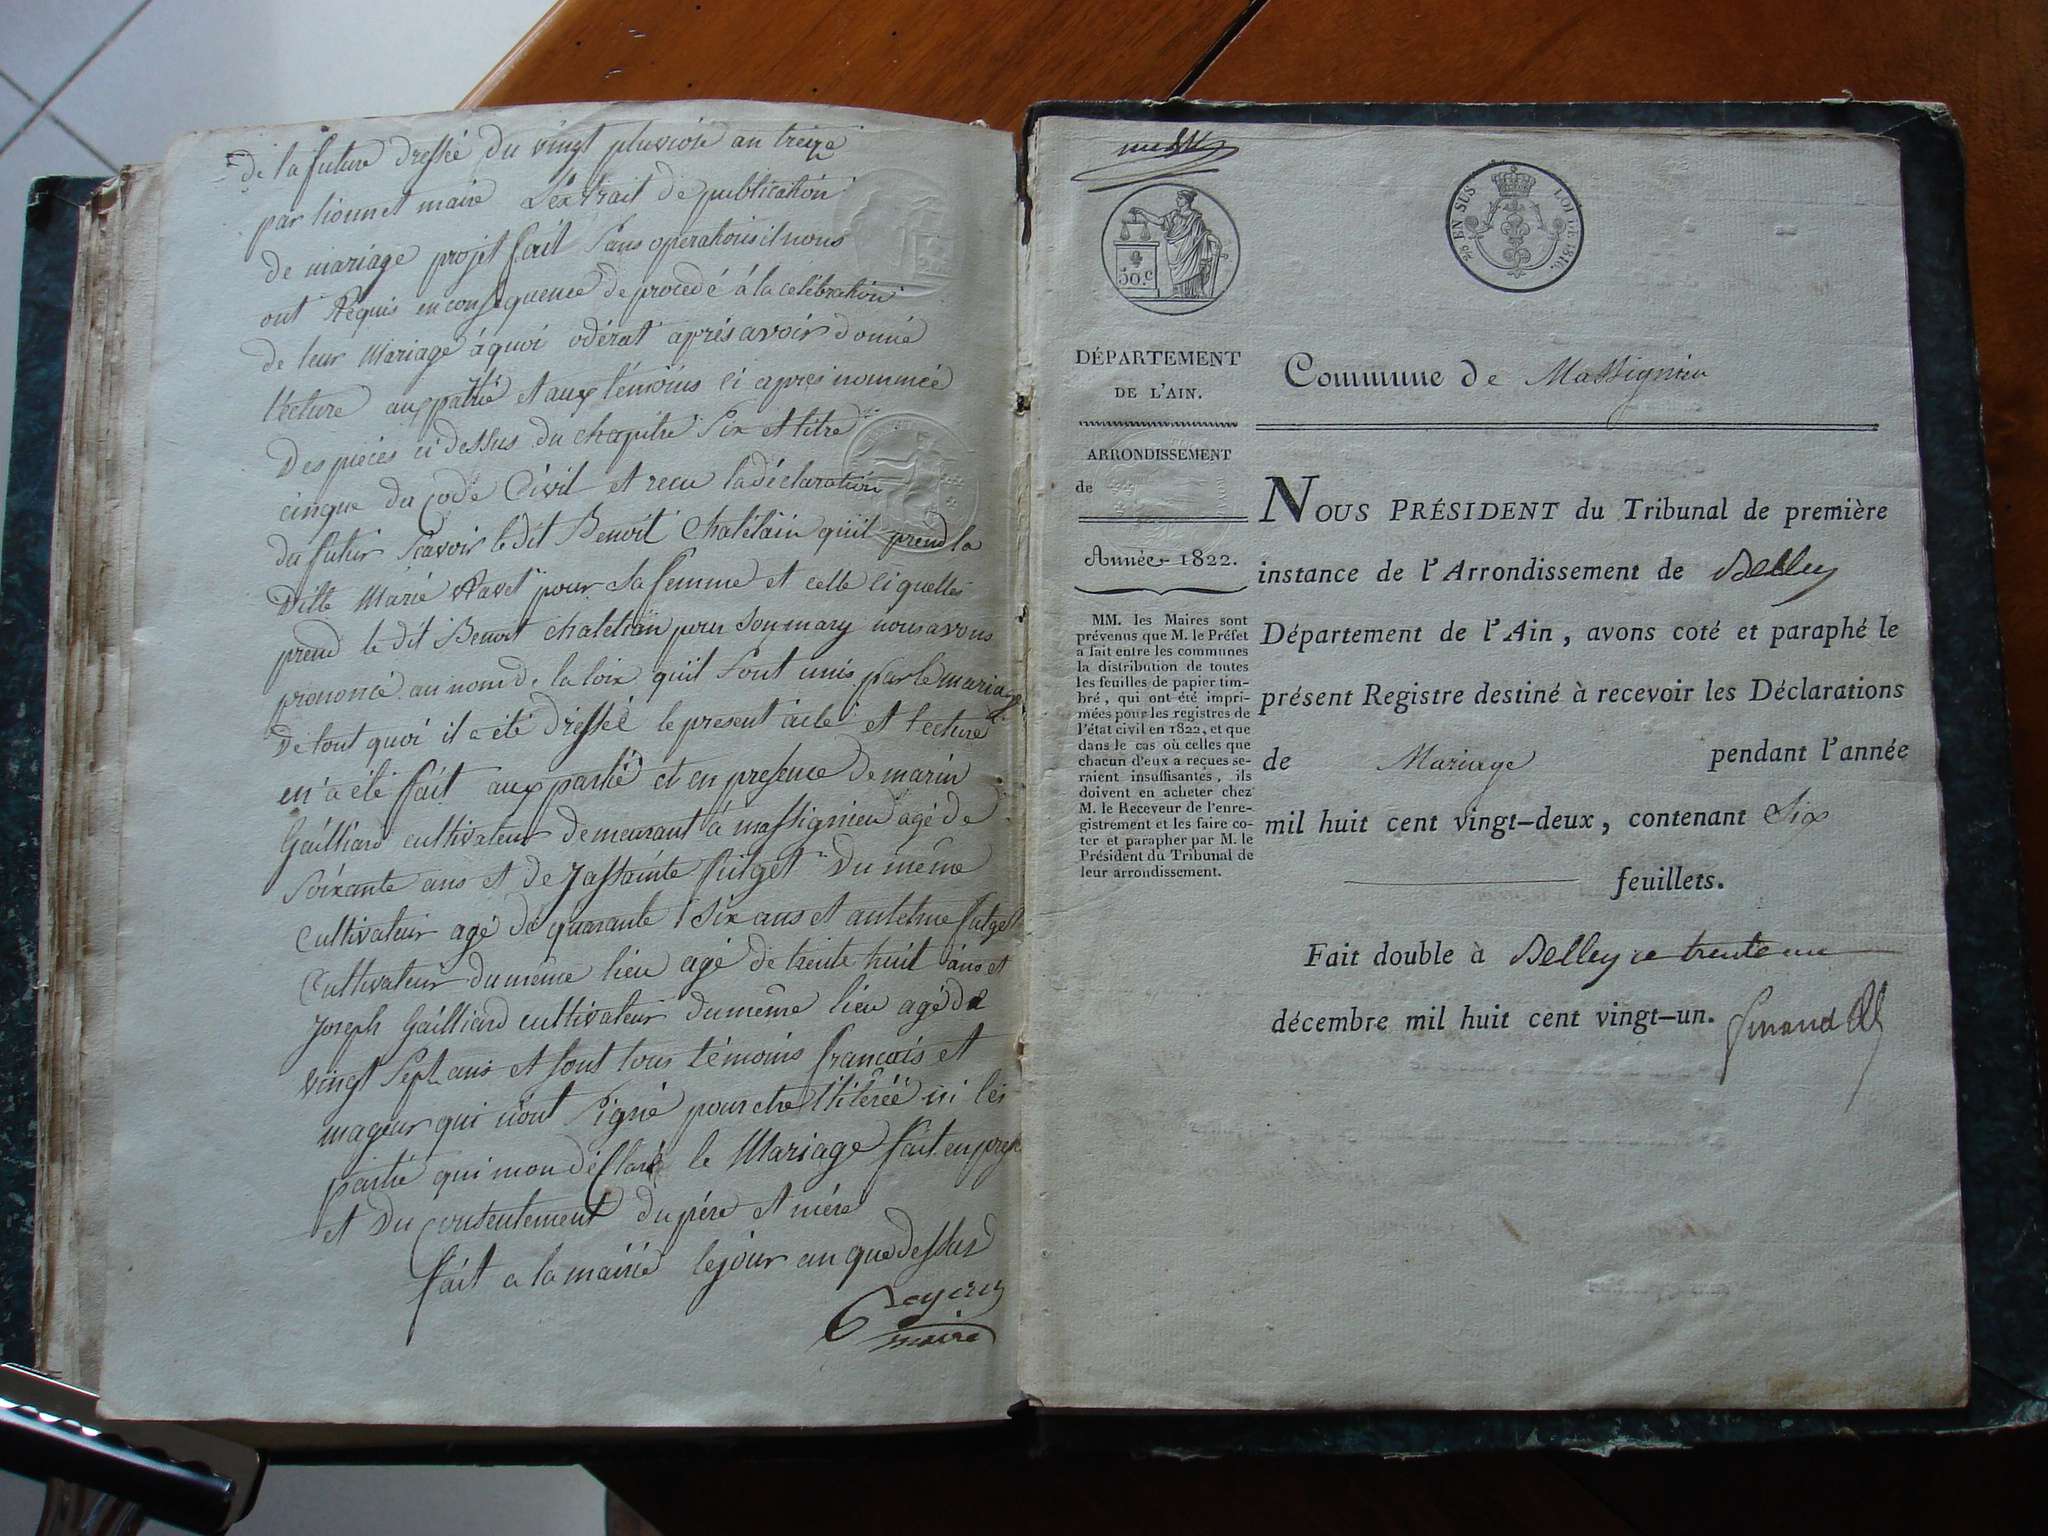 de la future dressée du vingt pluviose an treize
par lionnet maire L'extrait de publication
de mariage projet fait sans operations il nous
ont Requis en consequence de procedé á la celébration
de leur Mariage á quoi odérat aprés avoir donné
lécture aux partie et aux témoins ci apres nommée
Des piéces ci dessus du chapitre Six et titre
cinque du Code Civil et recu la déclaration
du futur Scavoir le dit Benoit Chatelain quil prend la
ditte Marie Ravet pour sa femme et celle ci quelle
prend le dit Benoit chatelain pour son mary nous avons
prononcé au nom de la loix quil sont unis par le mariage
De tout quoi il a été dréssé le present acte et lecture
en a été fait aux partie et en presence de marin
Gailliard cultivateur demeurant á massignieu agé de
Soixante ans et de futget Du méme
cultivateur agé de quarante Six ans et antelme futget
Cultivateur du même lieu agé de trente huit ans et
Joseph Gailliard cultivateur du même lieu agé de
vingt Sept ans et sont tous témoins francais et
mageur qui n'ont Signé pour etre ni les
partie qui mon déclaré le Mariage fait en
et Du Consentement du pére et mére
fait a la mairie le jour an que dessus
maire
50 c
25 EN SUS LOI DE 1816.
DÉPARTEMENT
DE L'AIN.
Commune de Massignieu
ARRONDISSEMENT
de
Année 1822.
MM. les Maires sont
prévenus que M. le Préfet
a fait entre les communes
la distribution de toutes
les feuilles de papier tim-
bré, qui ont été impri-
mées pour les registres de
l'état civil en 1822, et que
dans le cas où celles que
chacun d'eux a reçues se-
raient insuffisantes, ils
doivent en acheter chez
M. le Receveur de l'enre-
gistrement et les faire co-
ter et parapher par M. le
Président du Tribunal de
leur arrondissement.
NOUS PRÉSIDENT du Tribunal de première
instance de l'Arrondissement de Belley
Département de l'Ain, avons coté et paraphé le
présent Registre destiné à recevoir les Déclarations
de Mariage pendant l'année
mil huit cent vingt-deux, contenant Six
feuillets.
Fait double à Belley ce trente un
décembre mil huit cent vingt-un.